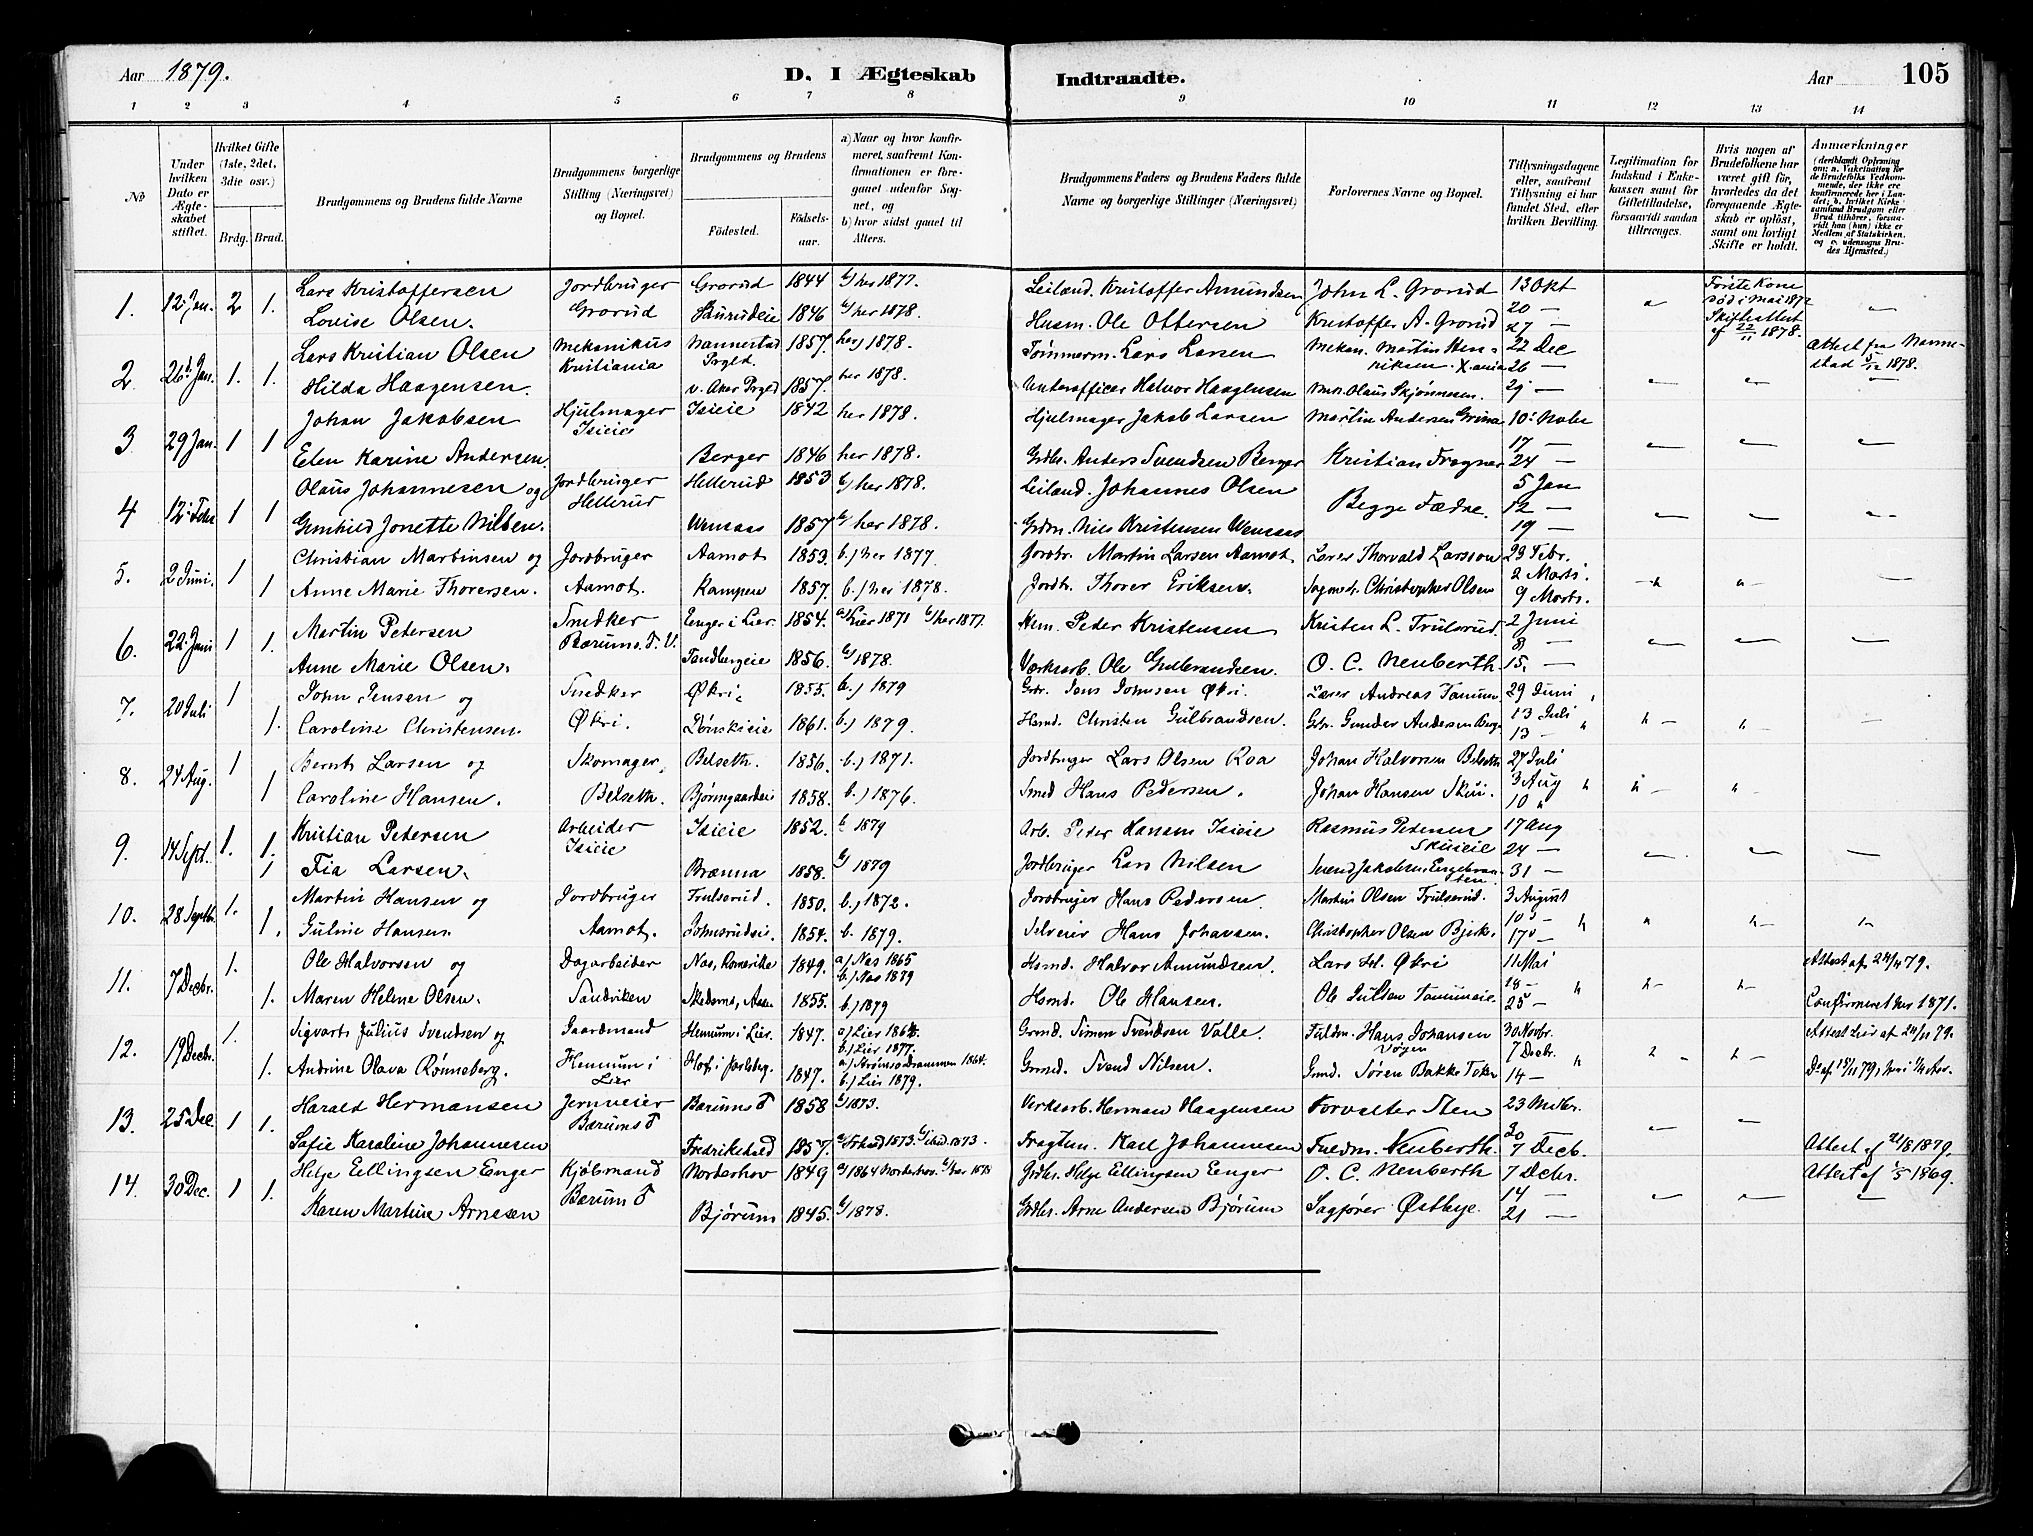 Aar 1879. D. I Ægteskab Indtraadte. Aar 105
1 2 3 4 5 6 7 8 9 10 11 12 13 14
No
Under hvilken Dato er Ægteskabet stiftet.
Hvilket Gifte (1ste, 2det, 3die osv.)
Brdg. Brud.
Brudgommens og Brudens fulde Navne
Brudgommens borgerlige Stilling (Næringsvei) og Bopæl.
Brudgommens og Brudens
Fødested. Fødselsaar.
a) Naar og hvor konfirmeret, saafremt Konfirmationen er foregaaet udenfor Sognet, og
b) hvor sidst gaaet til Alters.
Brudgommens Faders og Brudens Faders fulde Navne og borgerlige Stillinger (Næringsvei)
Forlovernes Navne og Bopæl.
Tillysningsdagene eller, saafremt Tillysning ei har fundet Sted, efter hvilken Bevilling.
Legitimation for Indskud i Enkekassen samt for Giftetilladelse, forsaavidt saadan tiltrænges.
Hvis nogen af Brudefolkene har været gift før, hvorledes da det foregaaende Ægteskab er opløst, samt om lovligt Skifte er holdt.
Anmærkninger
1. 12. Jan. 2 1. Lars Kristoffersen Jordbruger Grorud 1844 b/ her 1877. Leiland. Kristoffer Amundsen John L. Grorud 13 Okt Første Kone død i Mai 1872
Louise Olsen. Grorud 1846 b/ her 1878. Husm. Ole Ottersen Kristoffer A. Grorud 20 — 27 — Skifteattest af 22/11 1878.
2. 26. Jan. 1. 1. Lars Kristian Olsen Mekanikus Kristiania Nannestad Prgld. 1857. her 1878. Tømmerm. Lars Larsen Mekan. Martin Henriksen. X.ania 22 Dec 26 — Attest fra Nannestad 5/12 1878.
Hilda Haagensen. v. Aker Prgld 1857. her 1878. Underofficer Halvor Haagensen Olaus Skjønnesen. 29 —
3 29 Jan. 1 1 Johan Jakobsen Hjulmager Isieie Isieie 1842 her 1878. Hjulmager Jakob Larsen Martin Andersen 10. Novbr
Elen Karine Andersen. Berger 1846 her 1878. Grdbr. Anders Svendsen Berger Kristian Frogner 17 — 24 —
4 12. Febr 1 1 Olaus Johannesen og Jordbruger Hellerud Hellerud 1853 b/ her 1878. Leiland. Johannes Olsen Begge Fædre. 5 Jan
Gunhild Jonette Nilsen. Wensaas 1857 b/ her 1878. Grdm. Nils Kristensen Wensaas 12 — 19 —
5. 2 Juni. 1 Christian Martinsen og Jordbruger Aamot 1853. b.) her 1877. Jordbr. Martin Larsen Aamot. Lærer Thorvald Larsson 23 Febr.
1 Anne Marie Thorersen. Aamot. Kampen 1857. b.) her 1878. Jordbr. Thorer Eriksen. Sagmstr. Christopher Olsen 2 Marts. 9 Marts.
6. 22. Juni 1 1. Martin Petersen Snedker Bærums. V. Enger i Lier 1854. a) Lier 1871 b/ her 1877. Peder Kristensen Kristen L. Trulsrud. 2 Juni
Anne Marie Olsen. Tandbergeie 1856. b/ 1878. Værksarb. Ole Gulbrandsen. O. C. Neuberth 8 — 15. —
7. 20 Juli 1 John Jensen og Snedker Økri 1855. b.) 1879 Gbr. Jens Johnsen Økri. Lærer Andreas Tanum 29 Juni
1. Caroline Christensen. Økri. Lønskieie 1861. b.) 1879. Husmd. Christen Gulbrandsen. Gbr. Gunder Andersen Berg 13 Juli 13 —
8. 24 Aug. 1 Bernt Larsen og Skomager, Belseth. 1856. b.) 1871. Jordbruger Lars Olsen Roa Johan Halvorsen Belseth 27 Juli
1 Caroline Hansen. Belseth. Bjørmgaardeie 1858. b.) 1876. Smed Hans Pedersen. Johan Hansen Skui. 3 Aug 10 "
9. 14 Sept. 1. 1. Kristian Petersen Arbeider Isieie Isieie 1852. b 1879 Arb. Peder Hansen Isieie Rasmus Petersen Skuieie 17 Aug 24 —
1 Fia Larsen. Brænna 1858. b/ 1879 Jordbruger Lars Nilsen 31 —
10. 28 Septb. 1. Martin Hansen og Jordbruger Trulserud. 1850. b.) 1872. Jordbruger Hans Pedersen. Martin Olsen Trulserud. 3 August
1. Guline Hansen. Aamot. Johnsrudeie. 1854. b. 1879. Selveier Hans Johansen. Christopher Olsen Bjerk. 10 — 17 —
11. 7 Decbr. 1. Ole Halvorsen og Dagarbeider Næs, Romerike 1849. a) Næs 1865 b.) Næs 1879 Husmd. Halvor Amundsen. Lars H. Økri 11 Mai Attest af 24/4 79.
1. Maren Helene Olsen. Sandviken Asker 1855. b.) 1879 Husmd. Ole Hansen. Ole Julsen Tanumeie. 18 — 25 — Confirmeret her 1871.
12. 19 Decbr. 1. Sigvart Julius Svendsen og Gaardmand Hennum i Lier. 1847. a) Lier 1862. b.) Lier 1877. Grmd. Simen Svendsen Valle. Fuldm. Hans Johansen 30 Novbr. Attest Lier af 24/11 79.
1. Andrine Olava Rønneberg. Hennum i Lier Hof i Jarlsberg. 1847. a) Strømsø Drammen 1864. b.) Lier 1879. Grmd. Svend Nilsen. Grmd. Søren Bakke 7 Decbr. 14 —
13. 25 Dec 1 1. Harald Hermansen Jernveier Bærums V Bærums V 1858 b/ 1873. Verksarb. Herman Haagensen Forvalter Sten 23 Novbr.
Sofie Karoline Johannesen Fredrikshald 1857. a/ Frhald 1873. b/ ibid. 1873. Fragtm. Karl Johannesen Fuldm. Neuberth. 30 7 Decb. Attest af 21/8 1879.
14. 30 Dec. 1 1. Helge Ellingsen Enger Kjøbmand Bærums V Norderhov 1849 a/ 1864 Norderhov. b/ her 1878 Grdbr. Helge Ellingsen Enger O. C. Neuberth 7 Dcbr. Attest af 1/5 1869.
Karen Martine Arnesen Bjørum 1845. b/ 1878. Grdbr. Arne Andersen Bjørum Sagfører Østbye. 14 — 21 —